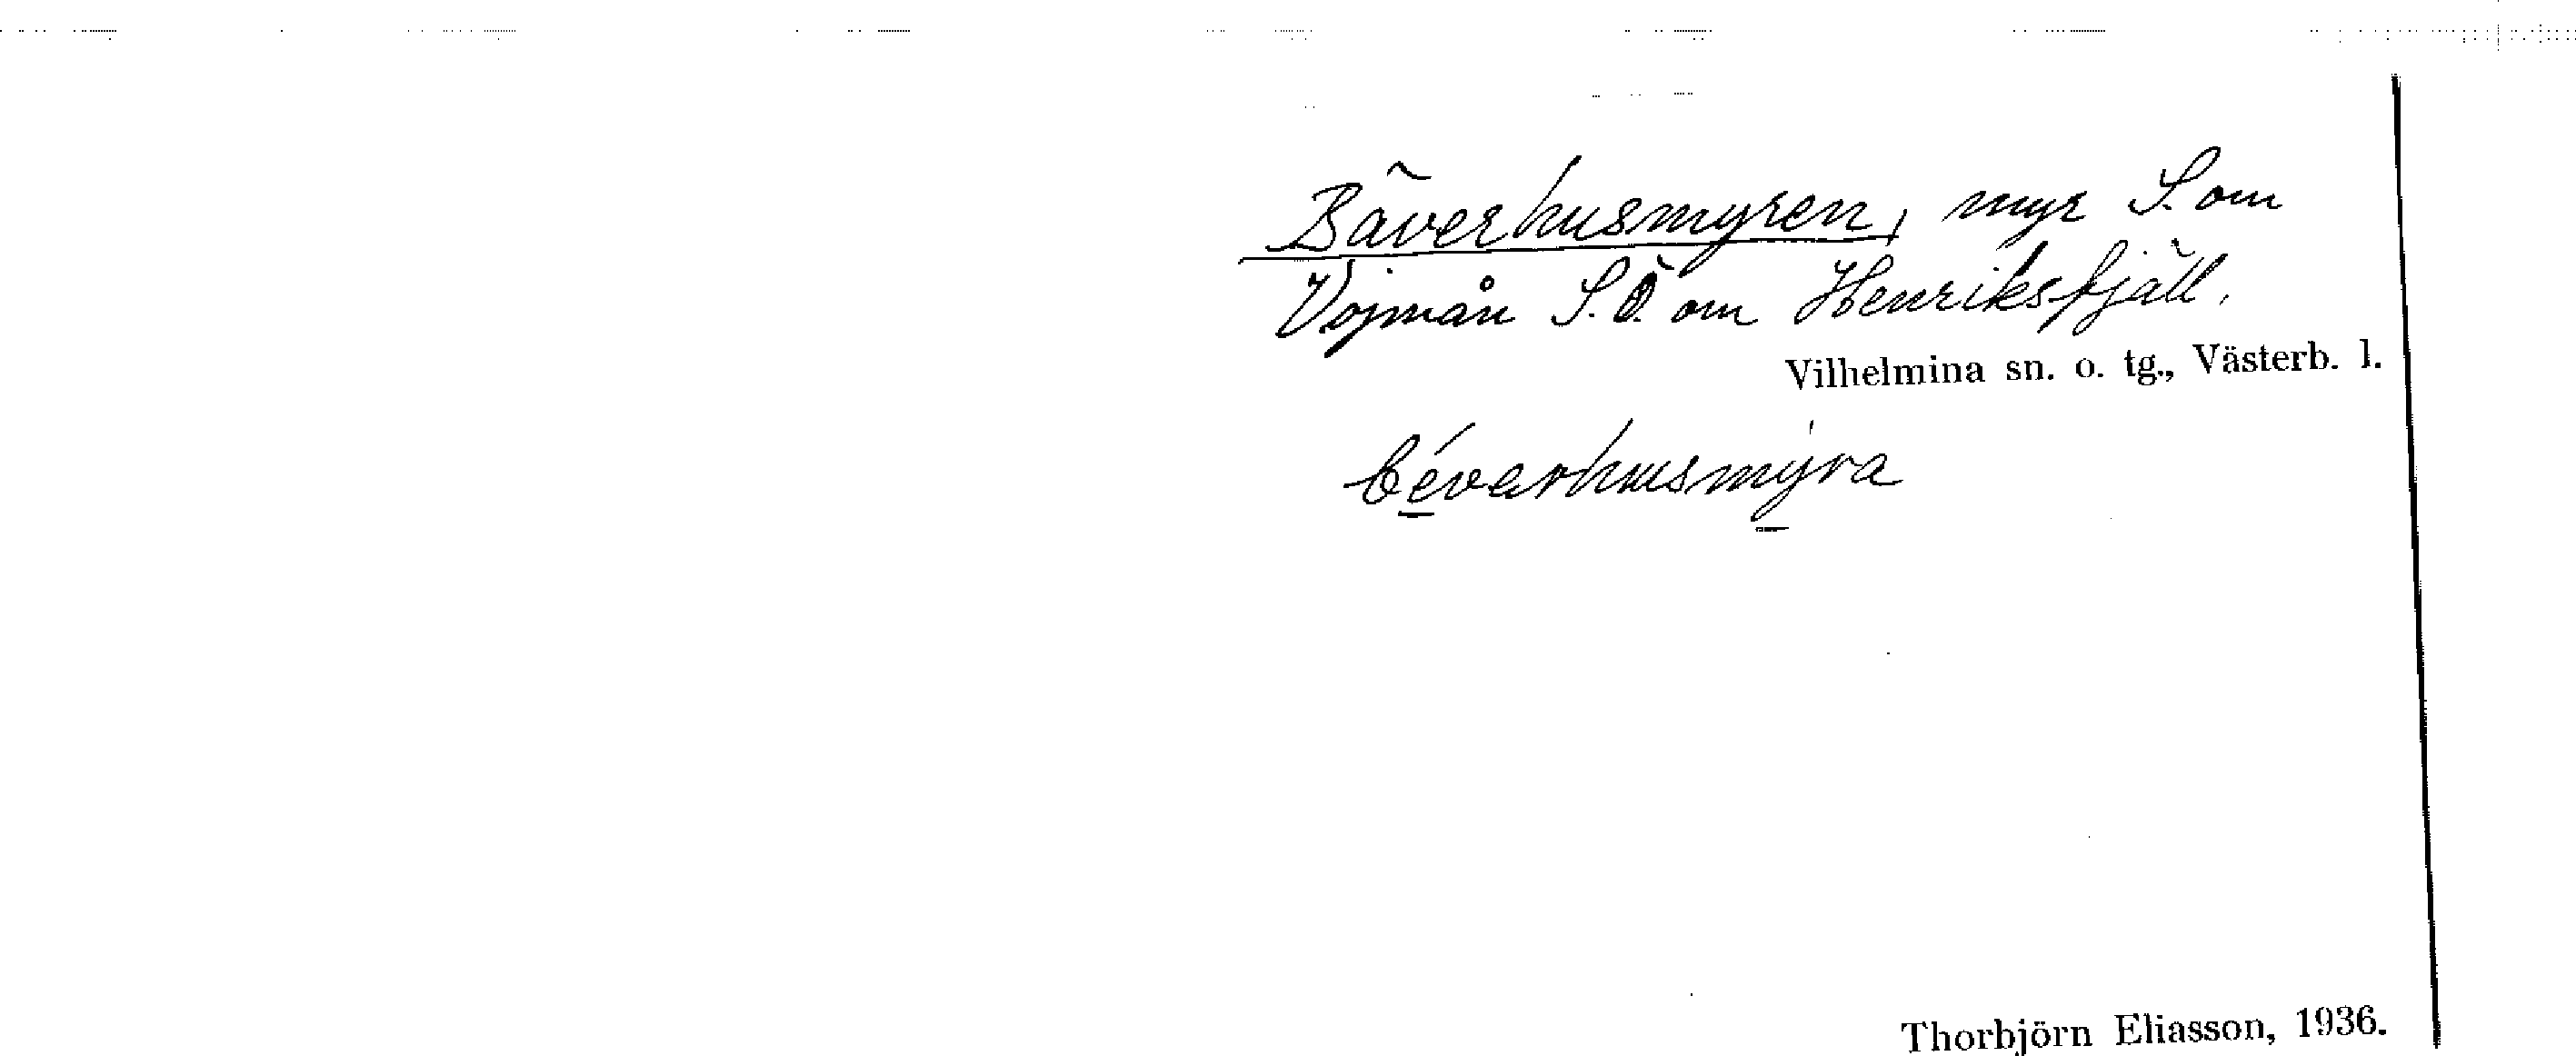 Bäverhusmyren, myr S. om
Vojmån S.Ö. om Henriksfjäll.
Vilhelmina sn. o. tg., Västerb. l.
béverhusmýra
Thorbjörn Eliasson, 1936.